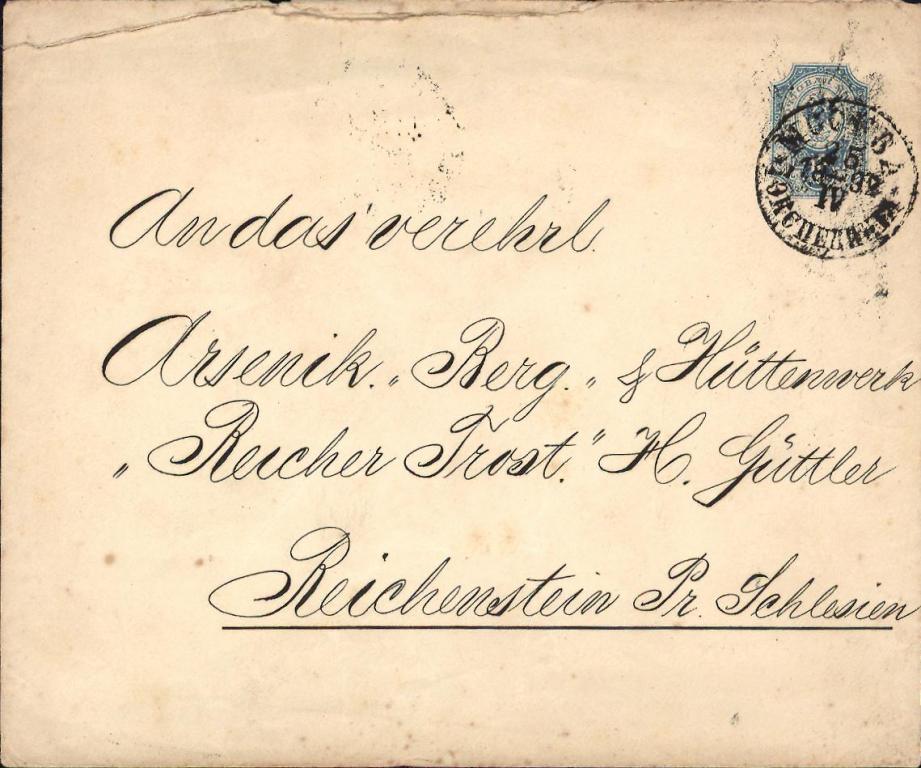 МОСКВА
15
IV
An das verehrl.
Arsenik- „Berg-" & Hüttenwerk
„Reicher Trost." H. Güttler
Reichenstein Pr. Schlesien